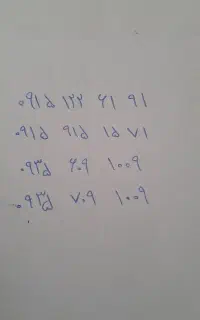 ۰۹۱۵ ۱۲۲ ۶۱ ۹۱
۰۹۱۵ ۹۱۵ ۱۵ ۷۱
۰۹۳۵ ۶۰۹ ۱۰۰۹
۰۹۳۵ ۷۰۹ ۱۰۰۹